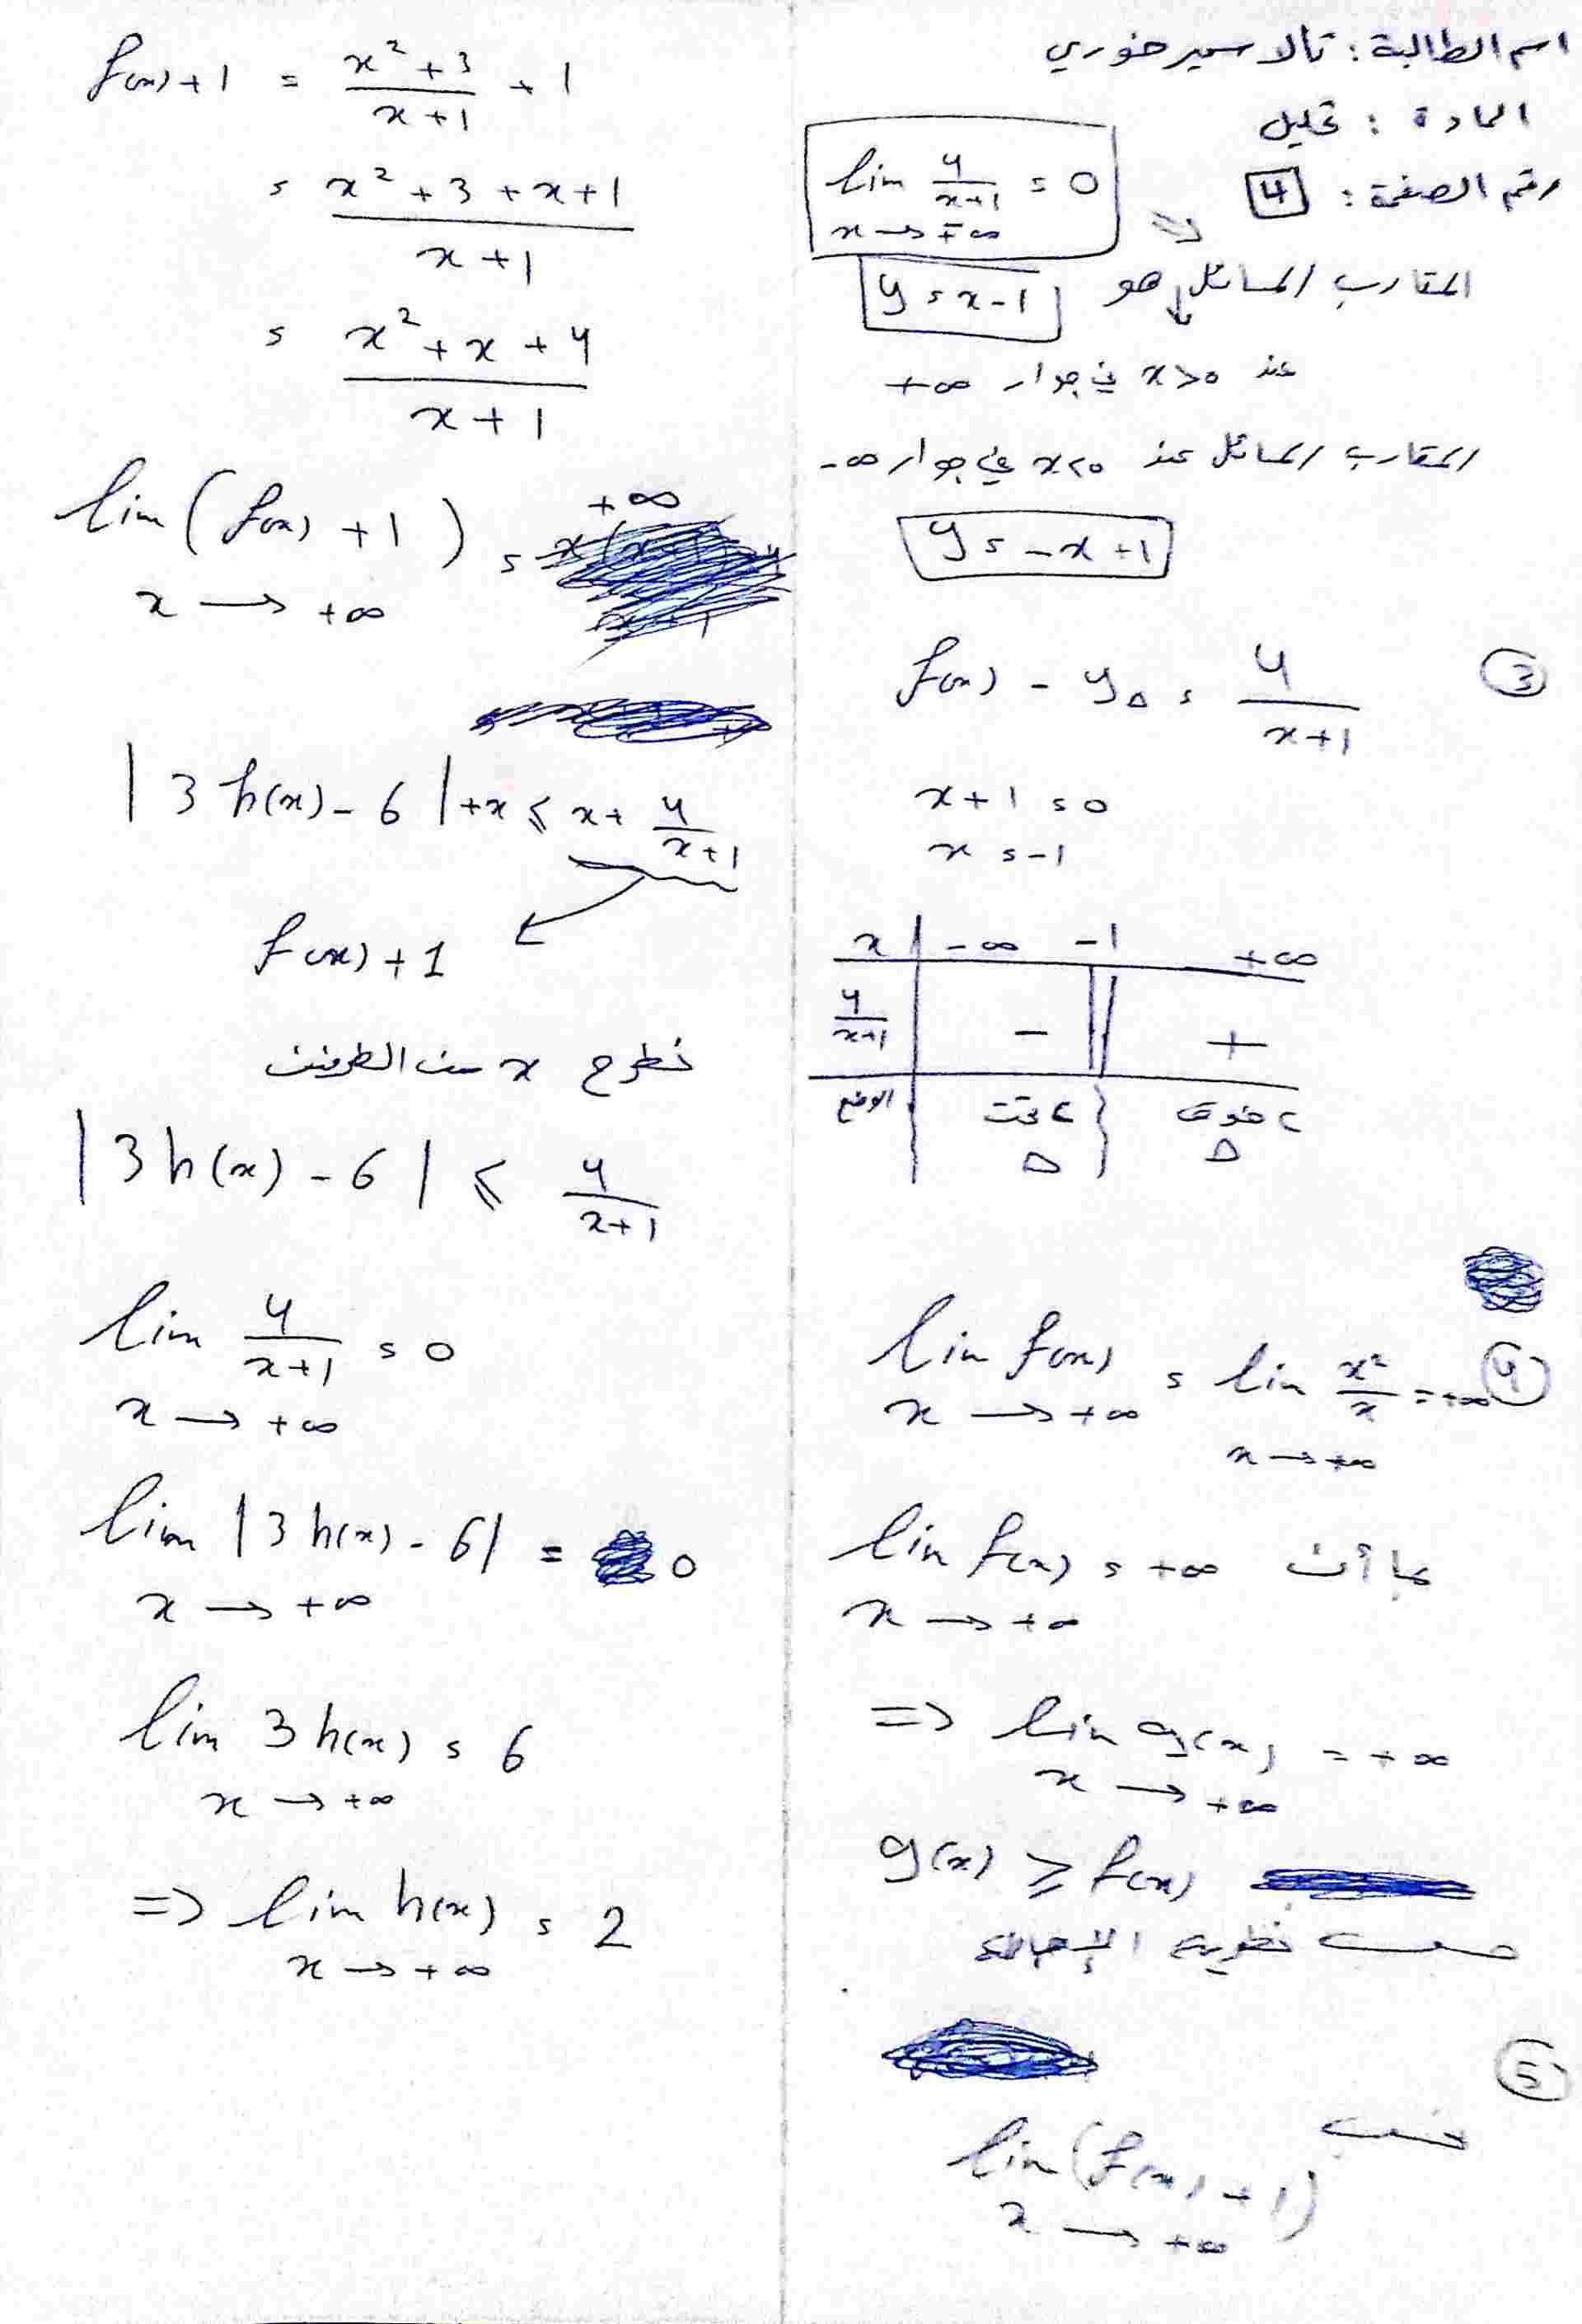 اسم الطالبة : تالا سمير خوري
المادة : تحليل
رقم الصفحة : 4
lim 4/(x+1) = 0
x → ∓∞
المقارب المائل هو y = x-1
عند x>0 في جوار +∞
المقارب المائل عند x<0 في جوار -∞
y = -x+1
③ f(x) - y_Δ = 4/(x+1)
x+1 = 0
x = -1
x | -∞ -1 +∞
4/(x+1) | - || +
الوضع | C تحت Δ | C فوق Δ
④ lim f(x) = lim x²/x = +∞
x → +∞ x → +∞
بما أن lim f(x) = +∞
x → +∞
=> lim g(x) = +∞
x → +∞
g(x) ⩾ f(x)
حسب نظرية الإحاطة
⑤
نحسب
lim (f(x) + 1)
x → +∞
f(x)+1 = (x²+3)/(x+1) + 1
= (x²+3+x+1)/(x+1)
= (x²+x+4)/(x+1)
lim (f(x) + 1) = +∞
x → +∞
|3h(x) - 6| +x ⩽ x+ 4/(x+1)
f(x)+1
نطرح x من الطرفين
|3h(x) - 6| ⩽ 4/(x+1)
lim 4/(x+1) = 0
x → +∞
lim |3h(x) - 6| = 0
x → +∞
lim 3h(x) = 6
x → +∞
=> lim h(x) = 2
x → +∞